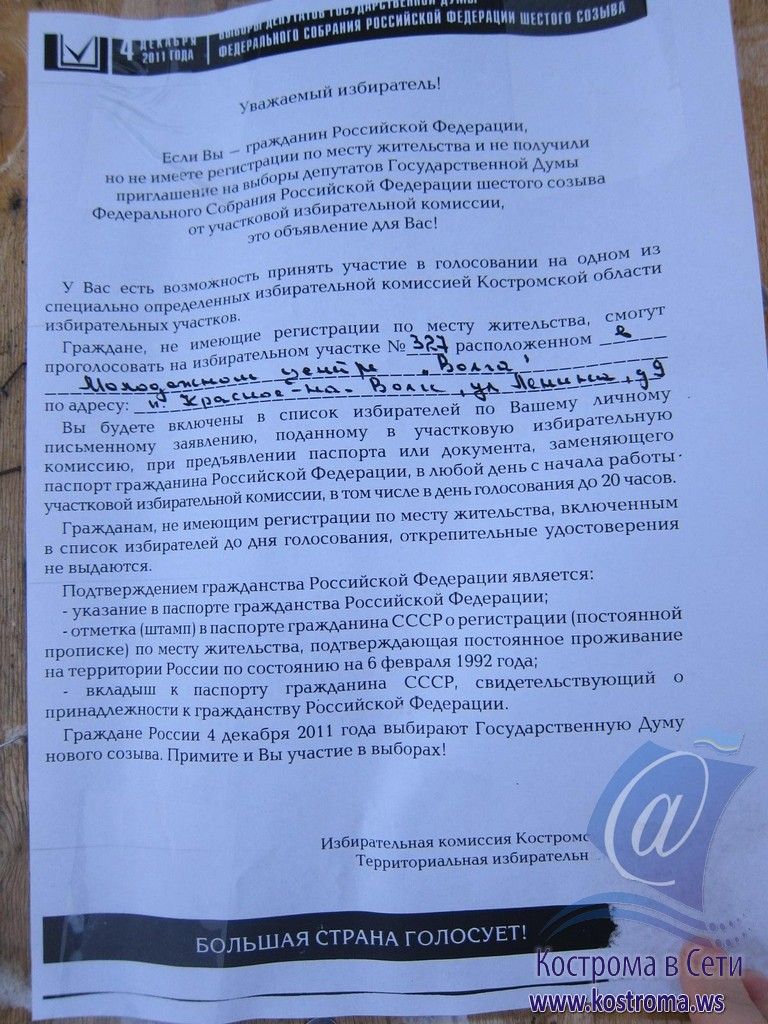 4 ДЕКАБРЯ
2011 ГОДА
ВЫБОРЫ ДЕПУТАТОВ ГОСУДАРСТВЕННОЙ ДУМЫ
ФЕДЕРАЛЬНОГО СОБРАНИЯ РОССИЙСКОЙ ФЕДЕРАЦИИ ШЕСТОГО СОЗЫВА
Уважаемый избиратель!
Если Вы – гражданин Российской Федерации,
но не имеете регистрации по месту жительства и не получили
приглашение на выборы депутатов Государственной Думы
Федерального Собрания Российской Федерации шестого созыва
от участковой избирательной комиссии,
это объявление для Вас!
У Вас есть возможность принять участие в голосовании на одном из
специально определенных избирательной комиссией Костромской области
избирательных участков.
Граждане, не имеющие регистрации по месту жительства, смогут
проголосовать на избирательном участке № 327 расположенном в
Молодежном центре "Волга"
по адресу: п. Красное-на-Волге, ул Ленина, д9
Вы будете включены в список избирателей по Вашему личному
письменному заявлению, поданному в участковую избирательную
комиссию, при предъявлении паспорта или документа, заменяющего
паспорт гражданина Российской Федерации, в любой день с начала работы
участковой избирательной комиссии, в том числе в день голосования до 20 часов.
Гражданам, не имеющим регистрации по месту жительства, включенным
в список избирателей до дня голосования, открепительные удостоверения
не выдаются.
Подтверждением гражданства Российской Федерации является:
- указание в паспорте гражданства Российской Федерации;
- отметка (штамп) в паспорте гражданина СССР о регистрации (постоянной
прописке) по месту жительства, подтверждающая постоянное проживание
на территории России по состоянию на 6 февраля 1992 года;
- вкладыш к паспорту гражданина СССР, свидетельствующий о
принадлежности к гражданству Российской Федерации.
Граждане России 4 декабря 2011 года выбирают Государственную Думу
нового созыва. Примите и Вы участие в выборах!
Избирательная комиссия Костромс
Территориальная избирательн
@
БОЛЬШАЯ СТРАНА ГОЛОСУЕТ!
Кострома в Сети
www.kostroma.ws